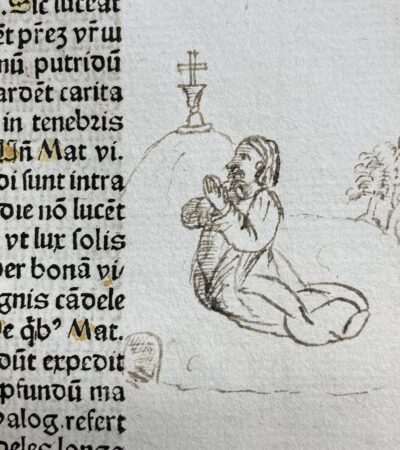 . Sic luceat
ēt prēz vr̄ū
nū putridū
ardēt carita
in tenebris
Iñ Mat vi.
di sunt intra
die nō lucēt
vt lux solis
per bonā vi
gnis cādele
De q̄bꝰ Mat.
dūt expedit
pfundū ma
yalog. refert